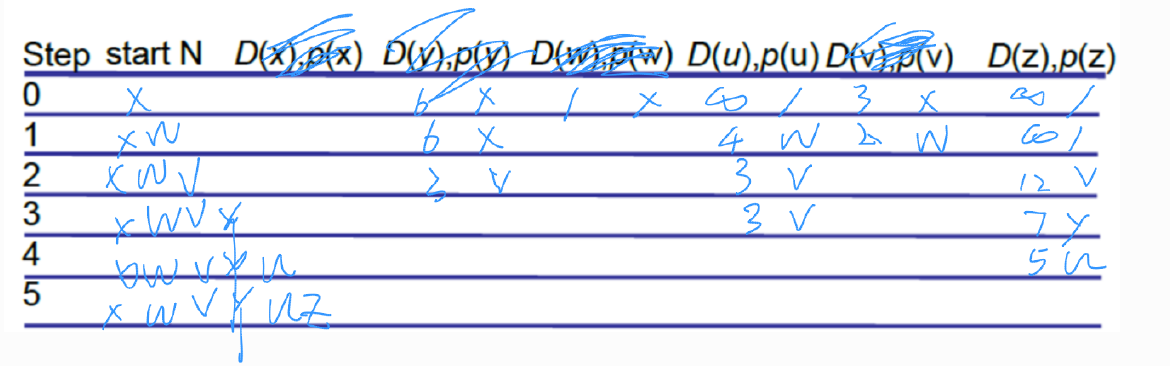 Step start N D(x),p(x) D(y),p(y) D(w),p(w) D(u),p(u) D(v),p(v) D(z),p(z)
0 x 6 x 1 x ∞ / 3 x ∞ /
1 xw 6 x 4 w 2 w ∞ /
2 xwv 3 v 3 v 12 v
3 xwvy 3 v 7 y
4 wvyu 5 u
5 xwvyuz